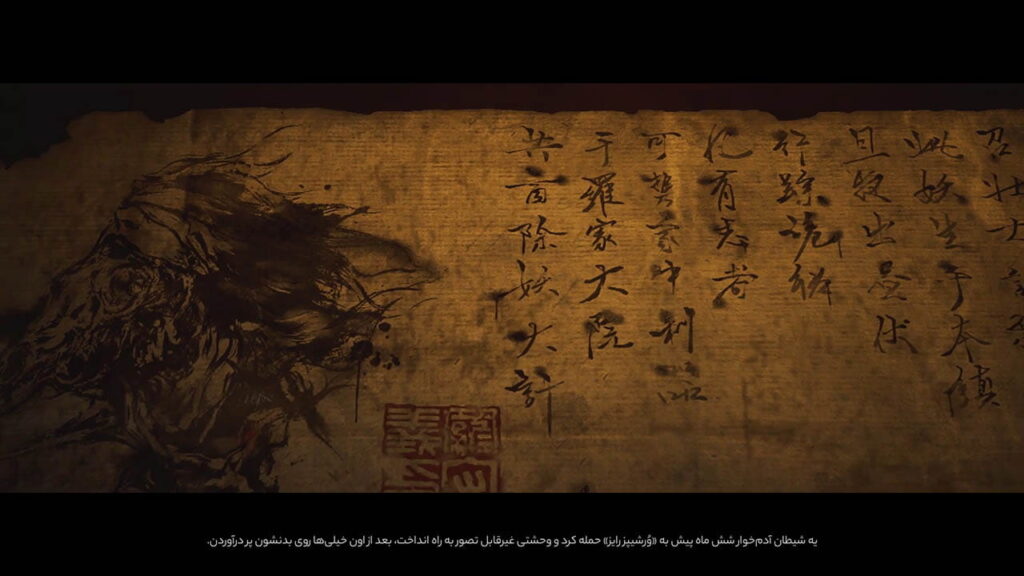 召壮士
此妖生于本镇
出 伏
行蹤詭秘
凡有志者
可携家中利器
于羅家大院
共商除妖大計
یه شیطان آدم‌خوار شش ماه پیش به «وُرشیپز رایز» حمله کرد و وحشتی غیرقابل تصور به راه انداخت، بعد از اون خیلی‌ها روی بدنشون پر درآوردن.